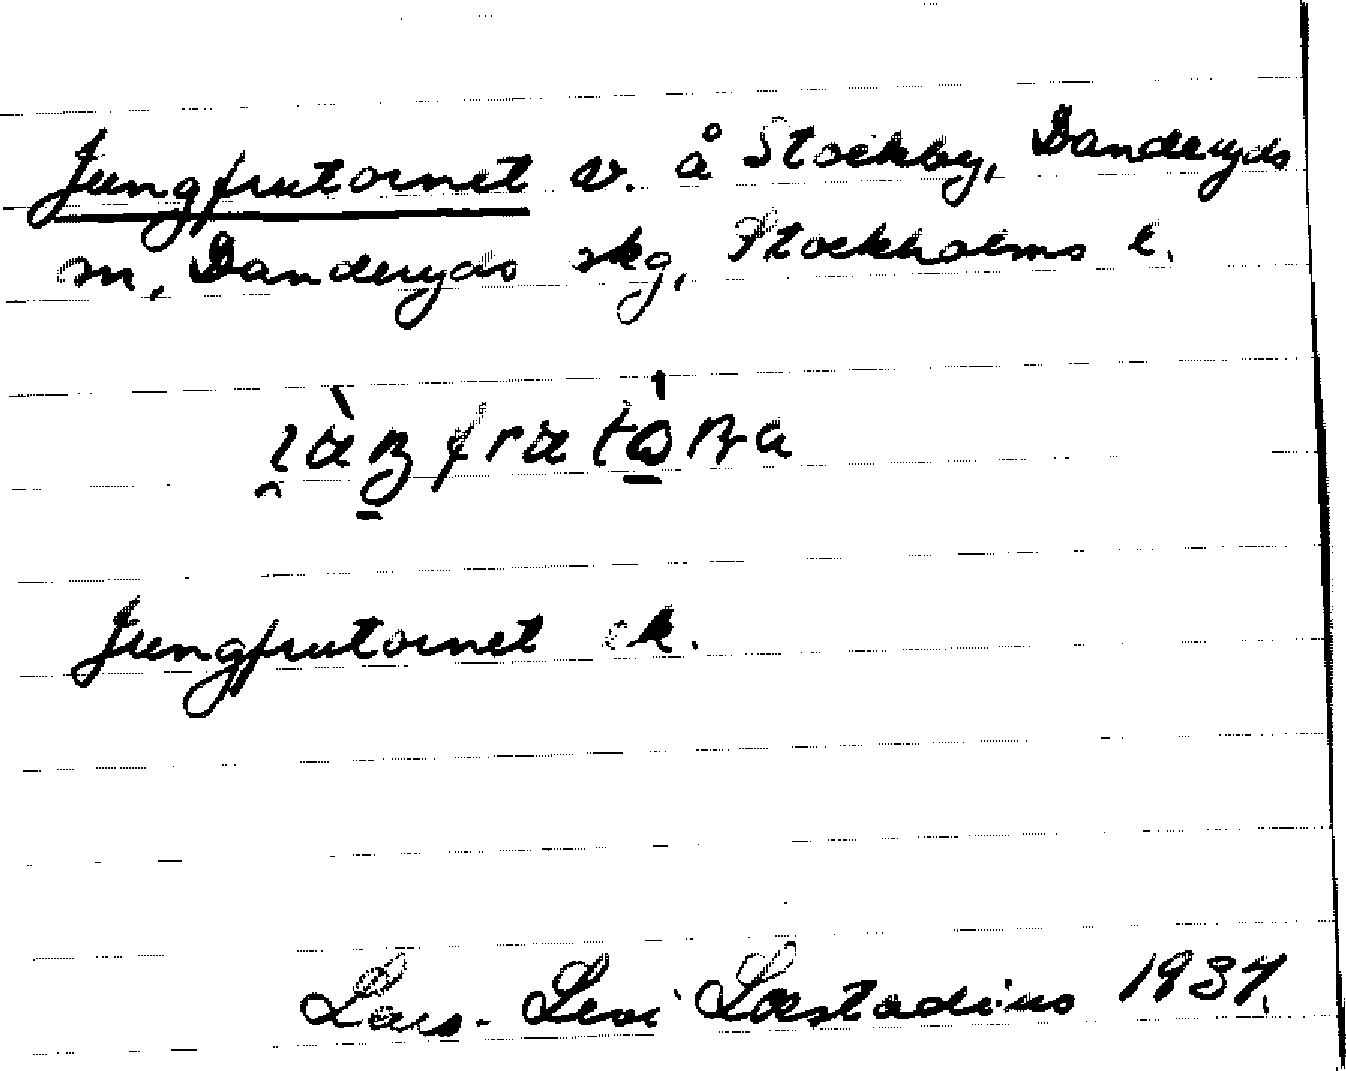 Jungfrutornet v. å Stockby, Danderyds
sn, Danderyds skg, Stockholms l.
Jungfrutornet ek.
Lars-Levi Læstadius 1937.